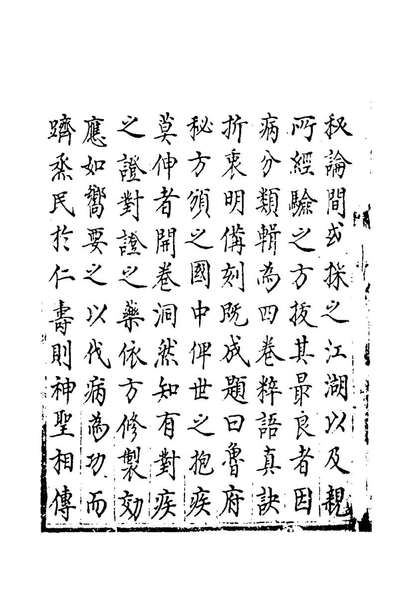 秘論間或採之江湖以及親
所經驗之方拔其最良者因
病分類輯為四卷粹語真訣
折衷明備刻既成題曰魯府
秘方頒之國中俾世之抱疾
莫伸者開卷洞然知有對疾
之證對證之藥依方修製効
應如嚮要之以代病為功而
躋烝民於仁壽則神聖相傳